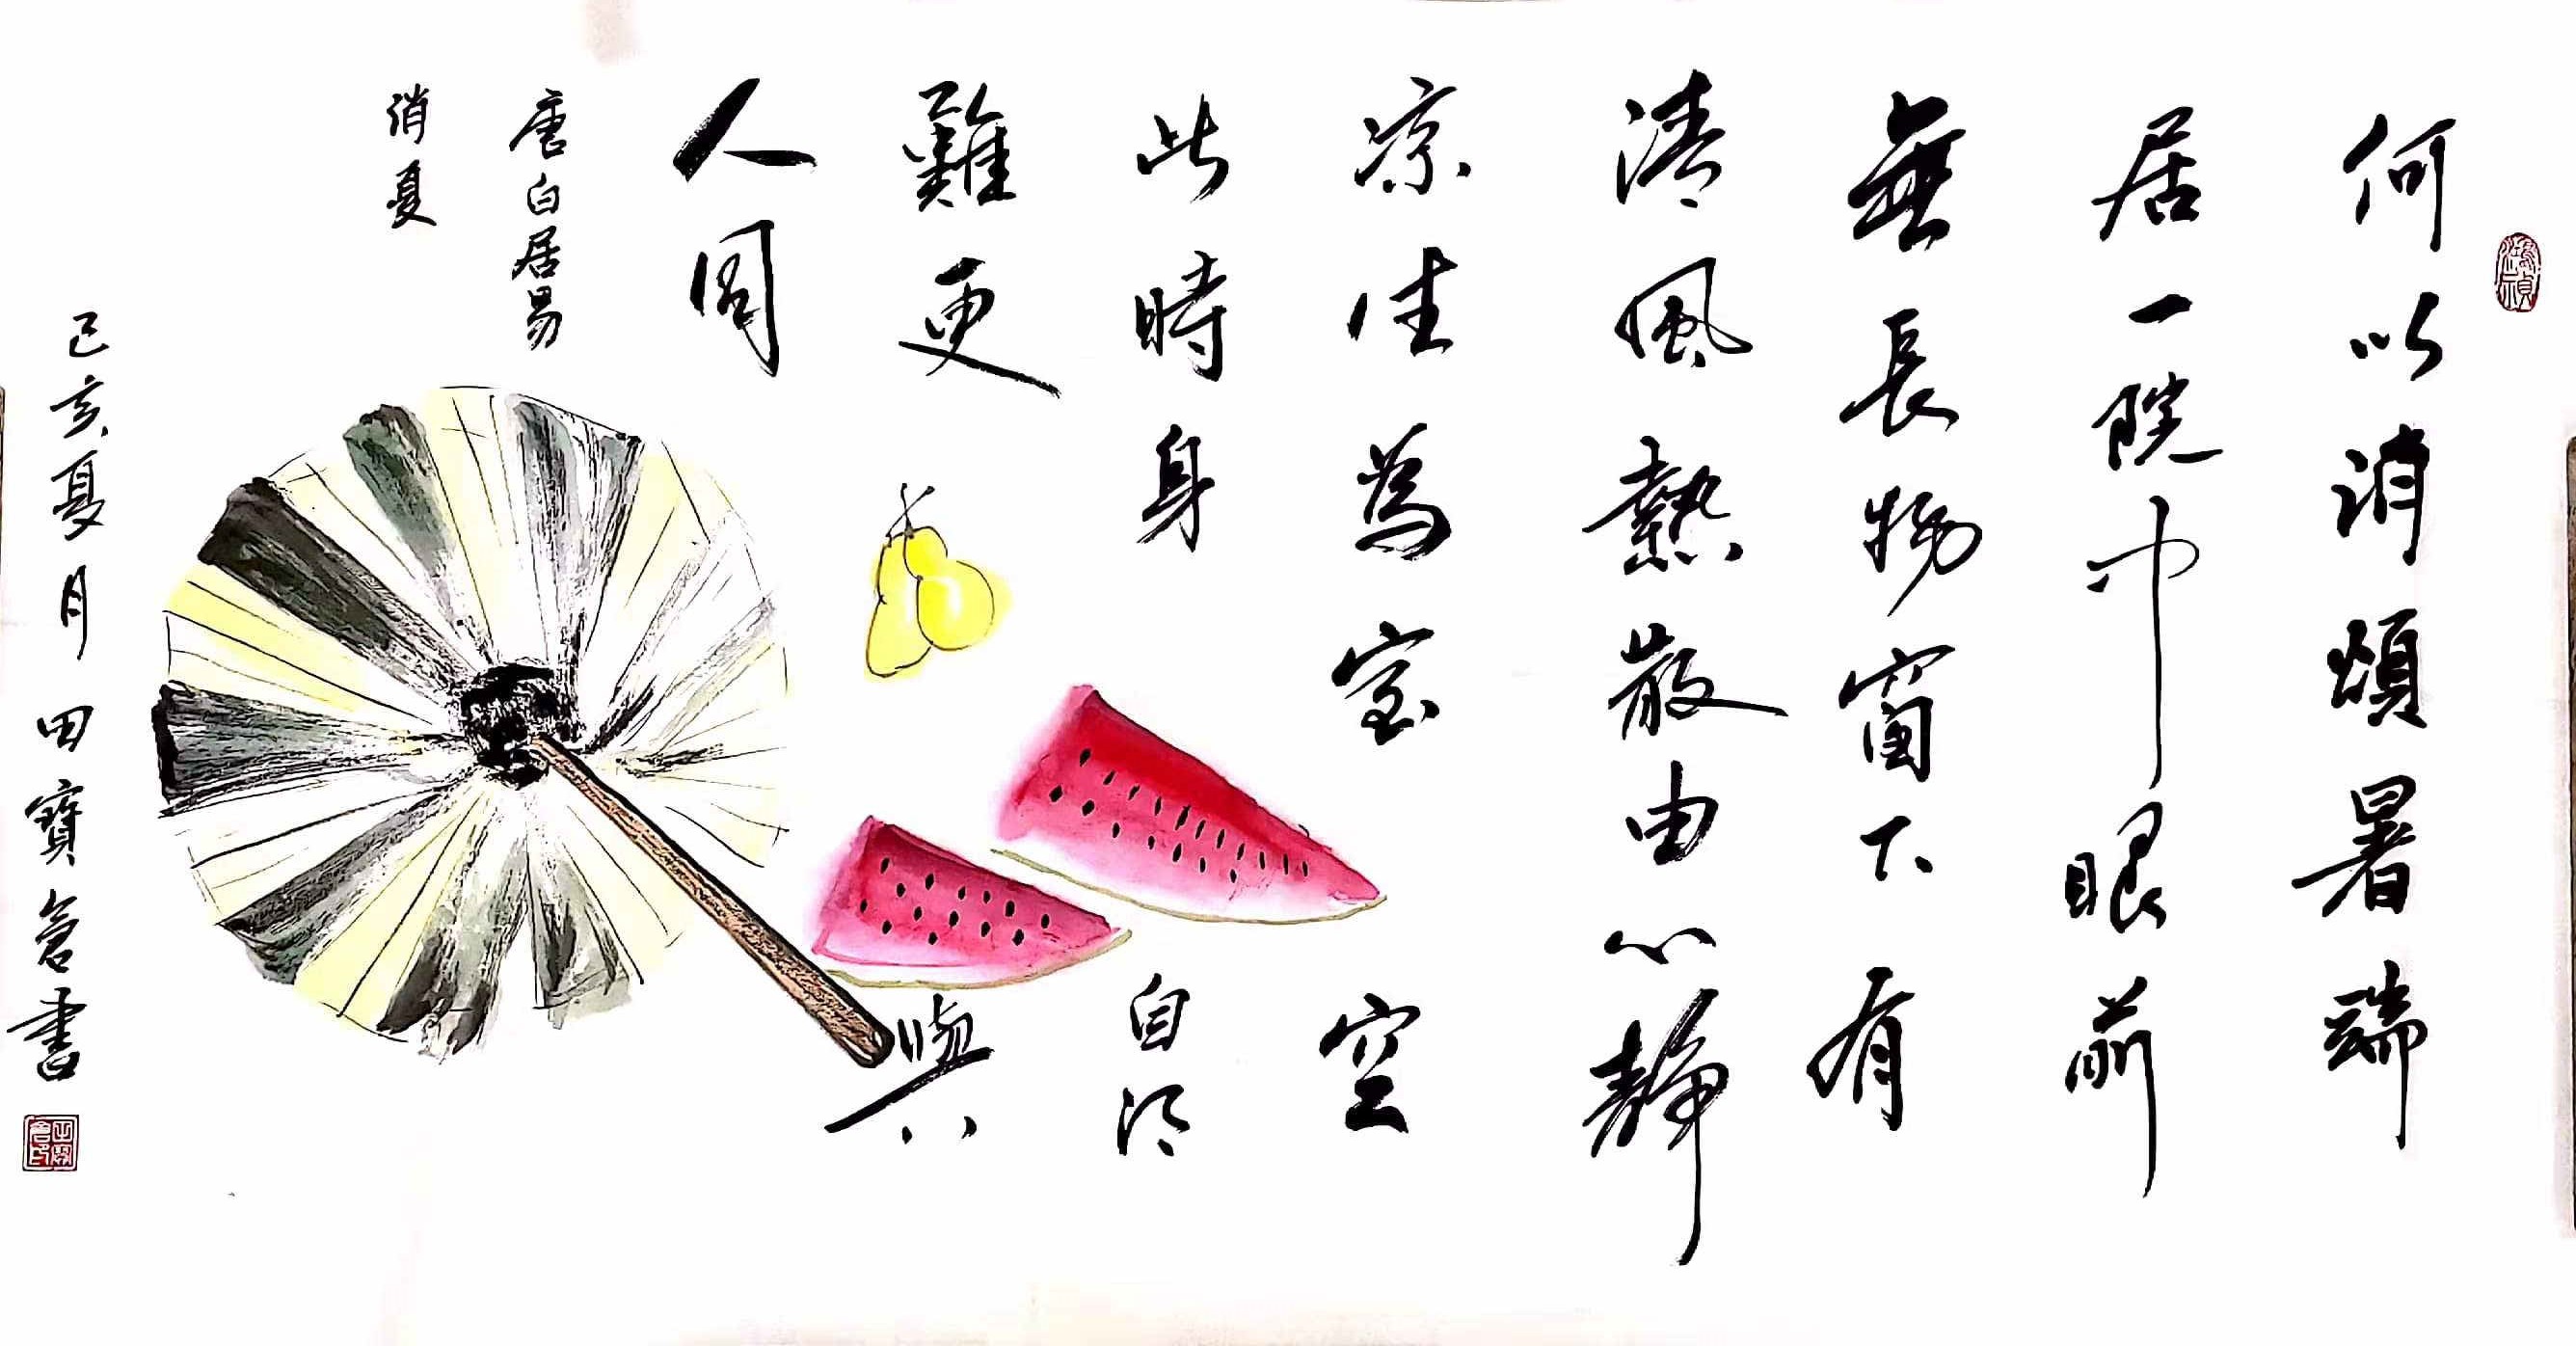 何以消煩暑端
居一院中眼前
無長物窗下有
清風熱散由心靜
凉生為室空
此時身自得
難更與
人同
唐白居易
消夏
己亥夏月田寶倉書
田寶倉印